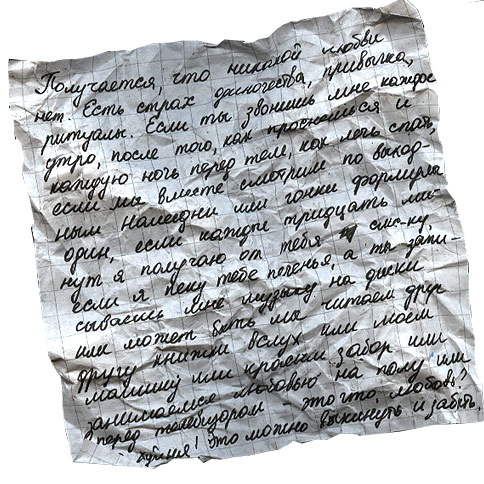 Получается, что никакой любви
нет. Есть страх одиночества, привычка,
ритуалы. Если ты звонишь мне каждое
утро, после того, как проснешься и
каждую ночь перед тем, как лечь спать,
если мы вместе смотрим по выход-
ным Намедни или гонки формулы
один, если каждые тридцать ми-
нут я получаю от тебя смс-ку,
если я пеку тебе печенья, а ты запи-
сываешь мне музыку на диски
или может быть мы читаем друг
другу книжки вслух или моем
машину или красим забор или
занимаемся любовью на полу или
перед телевизором - это что, любовь?
- хуйня! Это можно выкинуть и забыть.